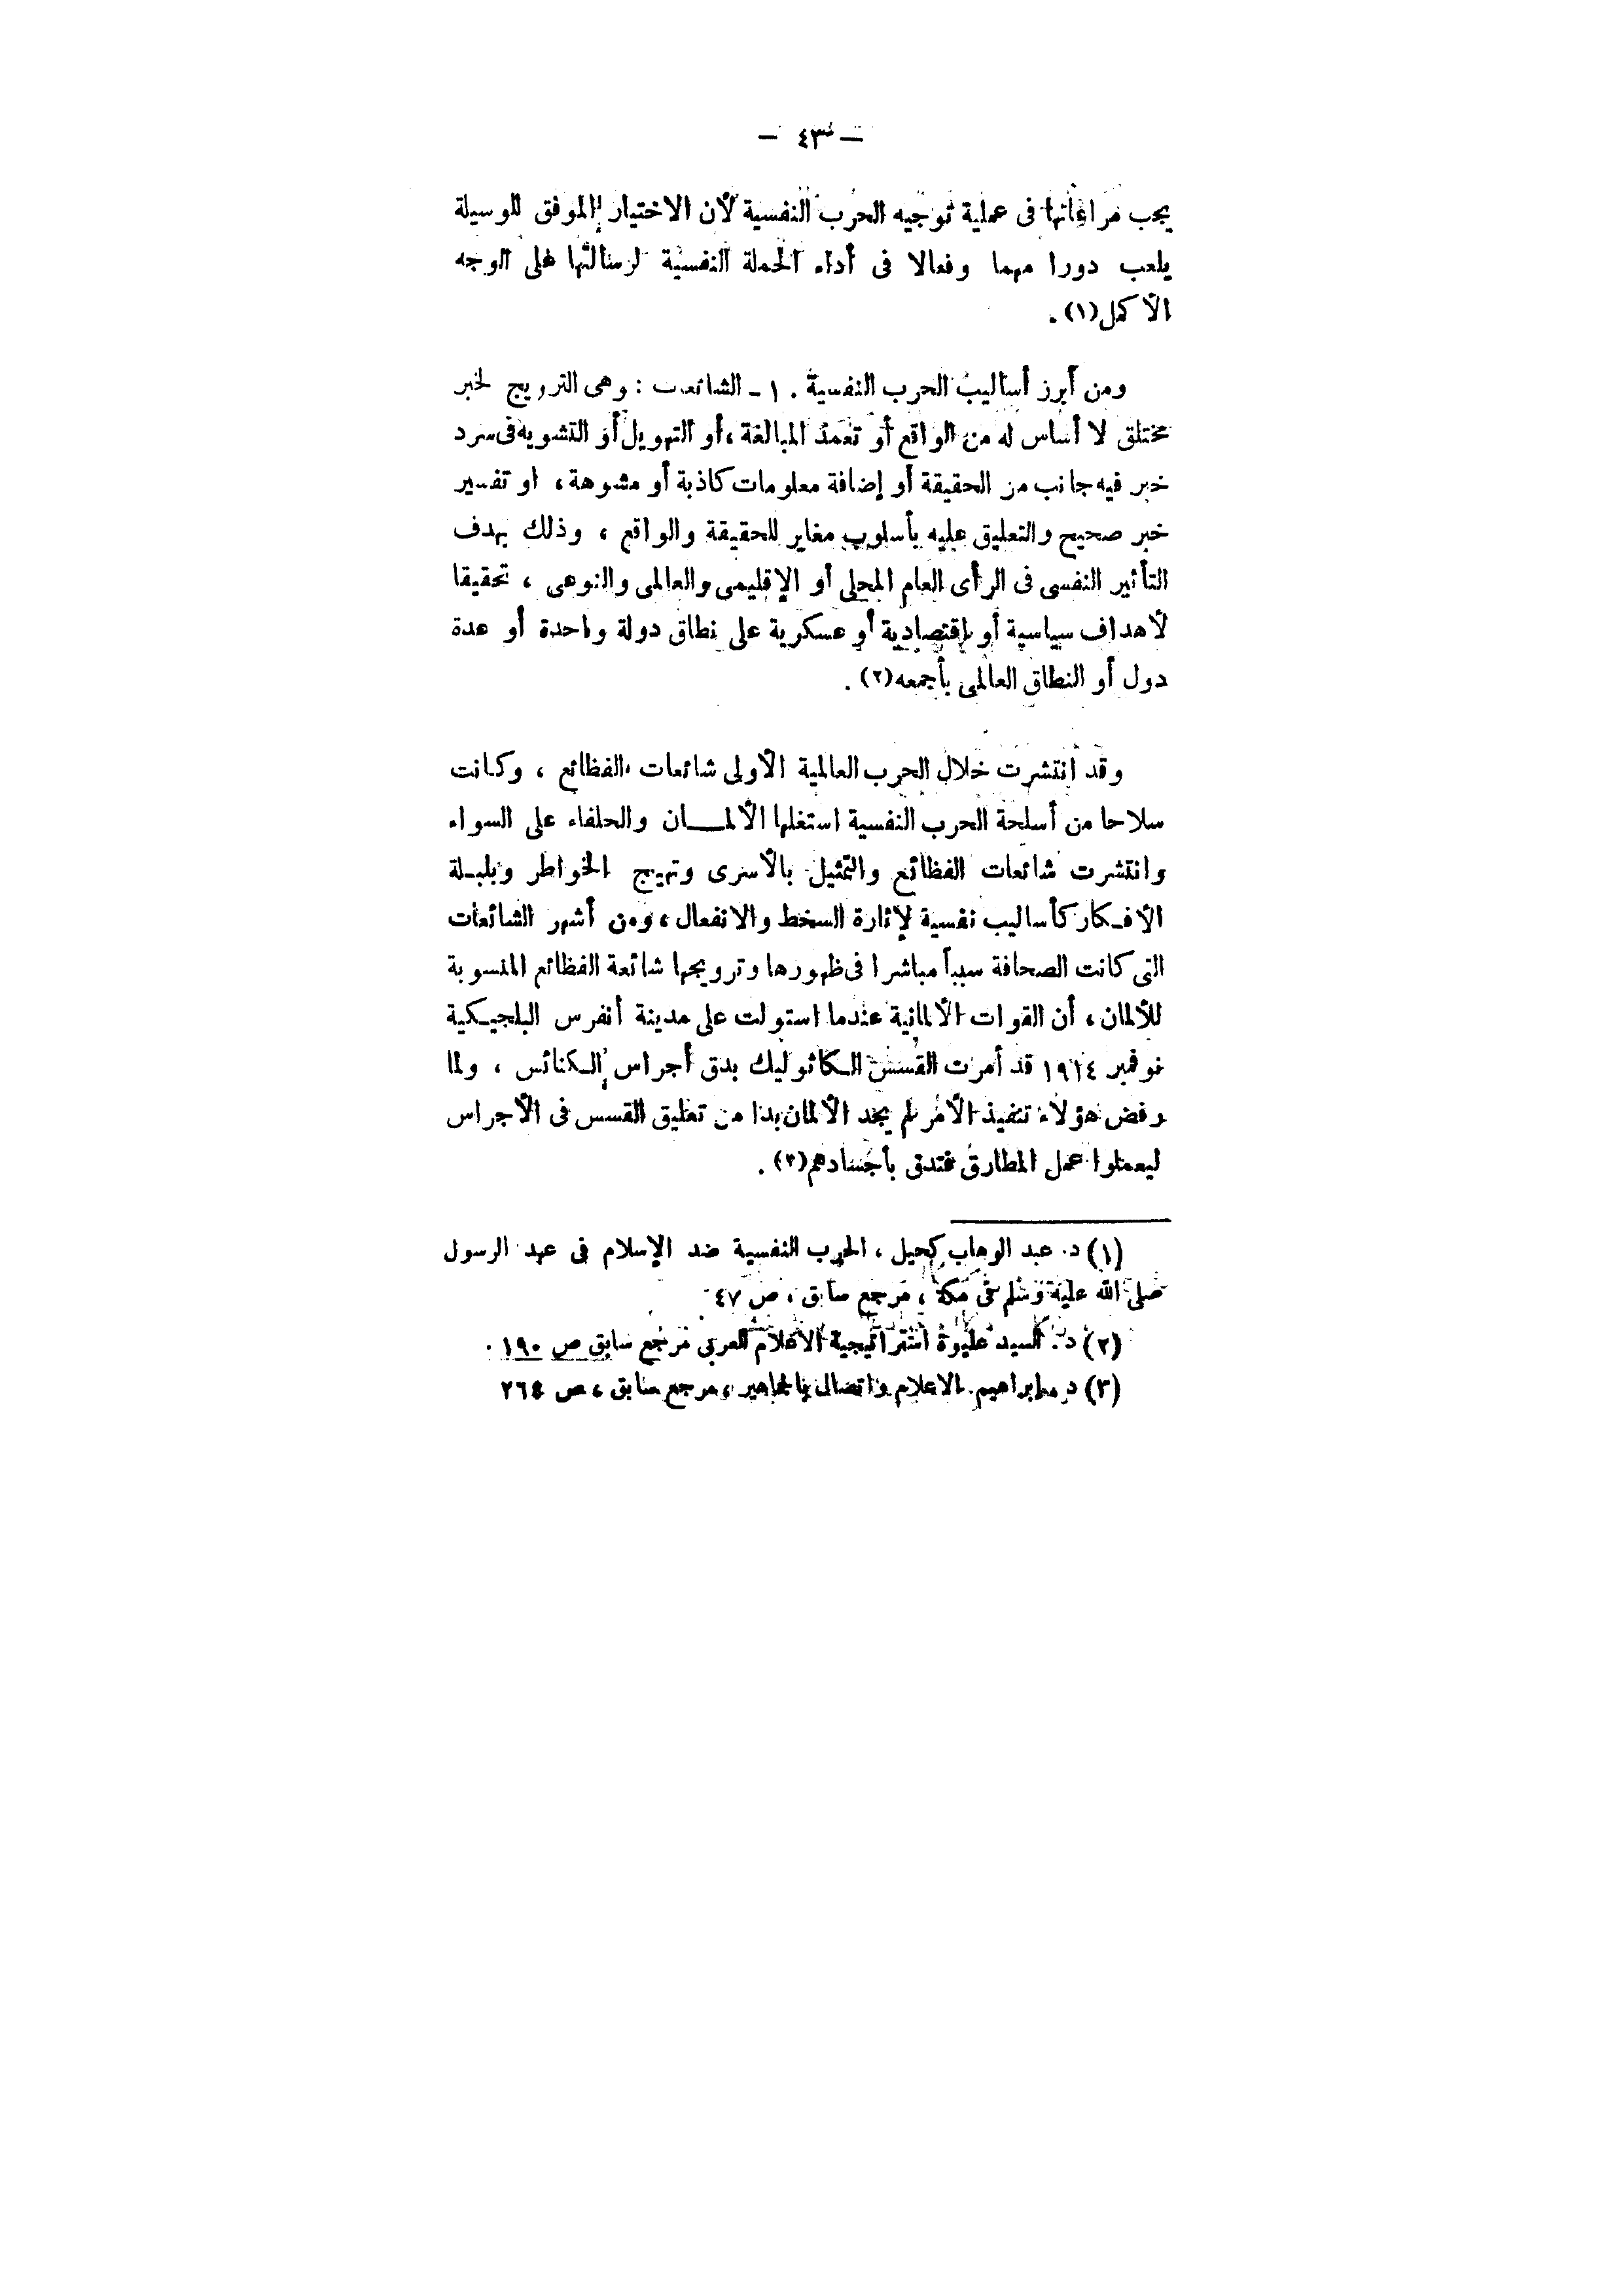 — ٤٣ —
يجب مراعاتها فى عملية توجيه الحرب النفسية لأن الاختيار الموفق للوسيلة
يلعب دورا مهما وفعالا فى أداء الحملة النفسية لرسالتها على الوجه
الأكمل(١) .
ومن أبرز أساليب الحرب النفسية . ١ ـ الشائعات : وهى الترويج لخبر
مختلق لا أساس له من الواقع أو تعمد المبالغة ، أو التهويل أو التشويه فى سرد
خبر فيه جانب من الحقيقة أو إضافة معلومات كاذبة أو مشوهة ، او تفسير
خبر صحيح والتعليق عليه بأسلوب مغاير للحقيقة والواقع ، وذلك بهدف
التأثير النفسى فى الرأى العام المحلى أو الإقليمى والعالمى والنوعى ، تحقيقا
لأهداف سياسية أو إقتصادية أو عسكرية على نطاق دولة واحدة أو عدة
دول أو النطاق العالمى بأجمعه(٢) .
وقد انتشرت خلال الحرب العالمية الأولى شائعات الفظائع ، وكانت
سلاحا من أسلحة الحرب النفسية استغلها الألمـــان والحلفاء على السواء
وانتشرت شائعات الفظائع والتمثيل بالأسرى وتهييج الخواطر وبلبلة
الأفـكار كأساليب نفسية لإثارة السخط والانفعال ، ومن أشهر الشائعات
التى كانت الصحافة سبباً مباشرا فى ظهورها وترويجها شائعة الفظائع المنسوبة
للألمان ، أن القوات الألمانية عندما استولت على مدينة أنفرس البلجيـكية
نوفمبر ١٩١٤ قد أمرت القسس الـكاثوليك بدق أجراس الـكنائس ، ولما
رفض هؤلاء تنفيذ الأمر لم يجد الألمان بدا من تعليق القسس فى الأجراس
ليعملوا عمل المطارق فتدق بأجسادهم(٣) .
(١) د. عبد الوهاب كحيل ، الحرب النفسية ضد الإسلام فى عهد الرسول
صلى الله عليه وسلم فى مكة ، مرجع سابق ، ص ٤٧
(٢) د. السيد عليوة استراتيجية الاعلام العربى مرجع سابق ص ١٩٠ .
(٣) د إبراهيم الاعلام واتصال بالجماهير ، مرجع سابق ، ص ٢٦٤